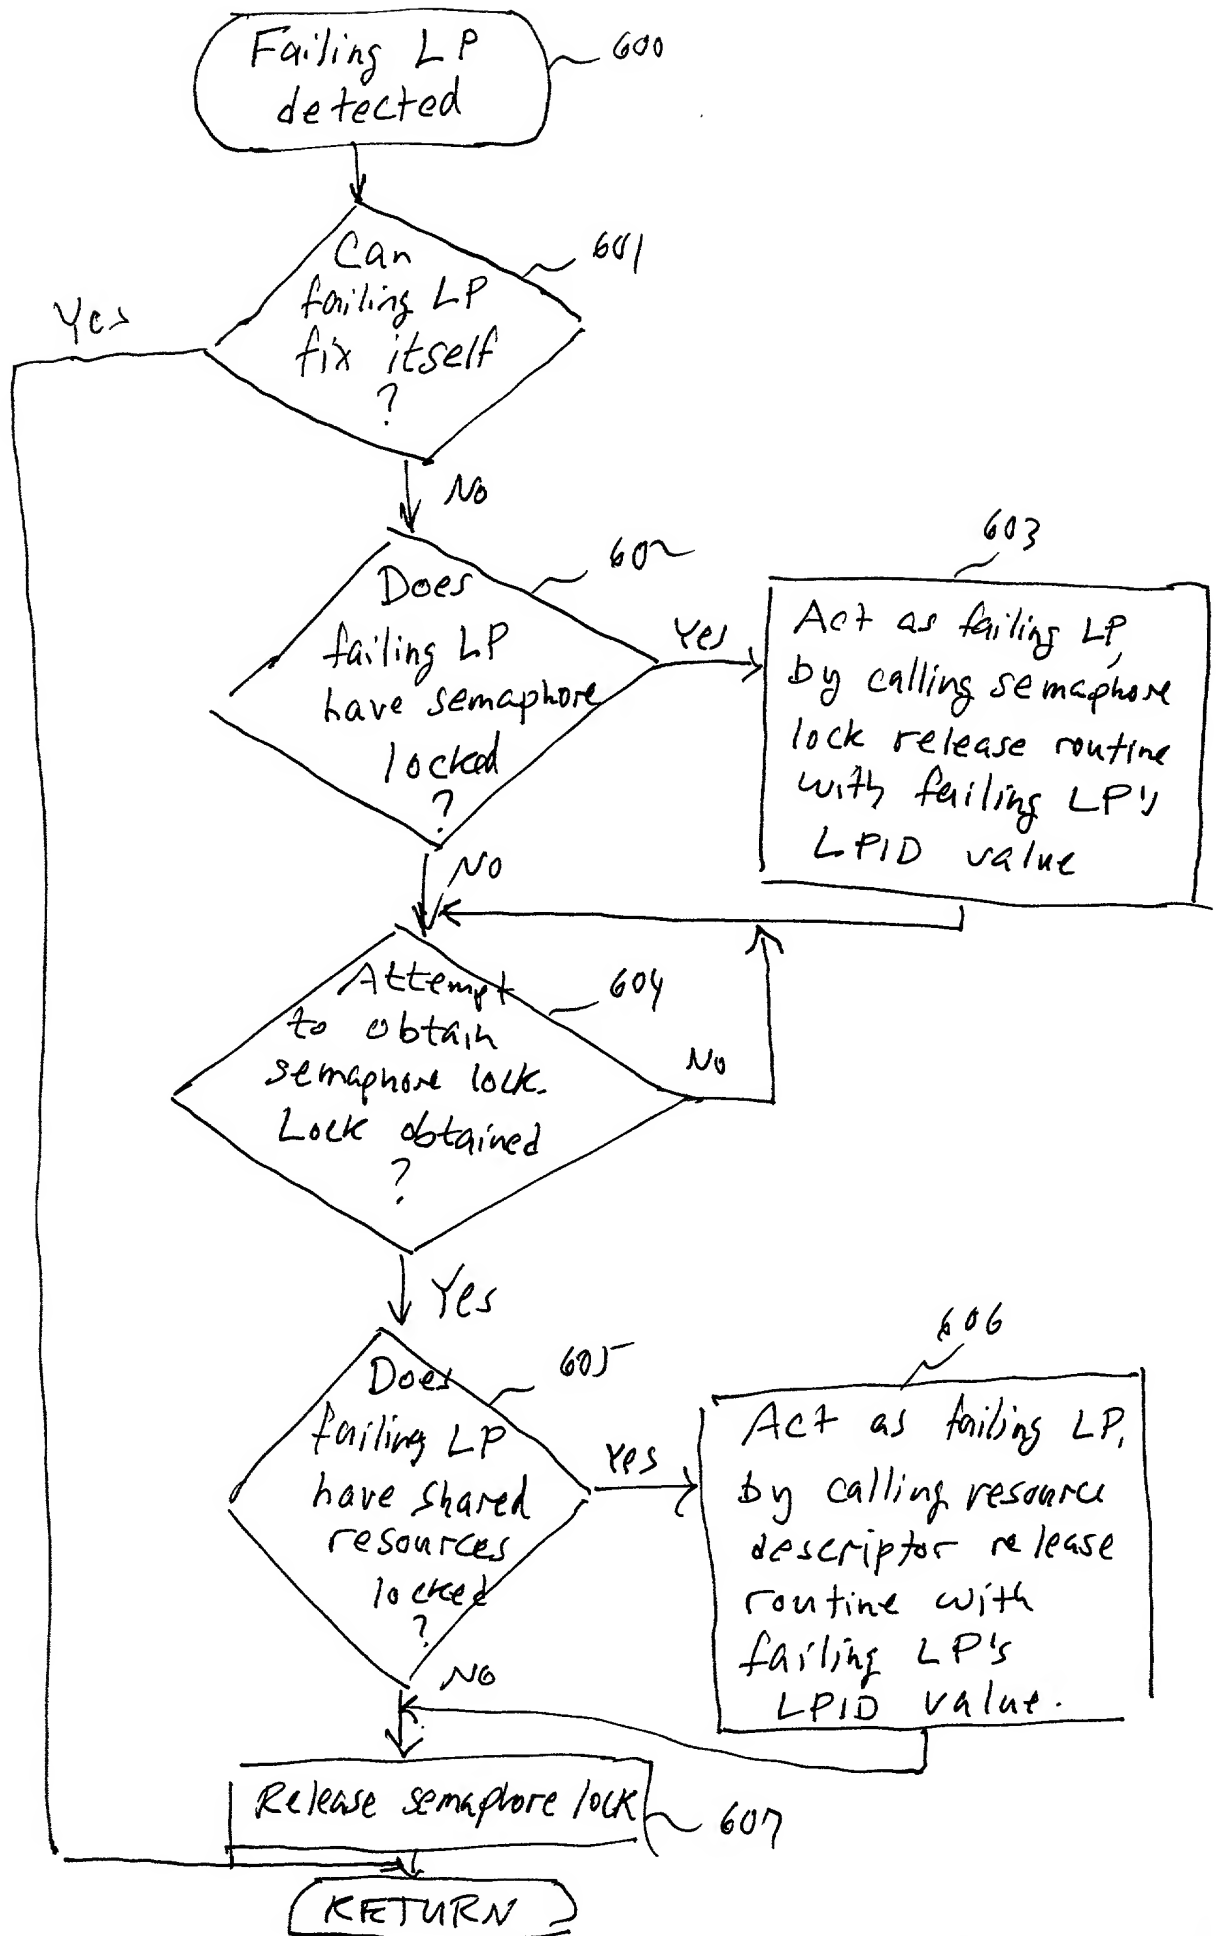 Failing LP
detected
600
Can
failing LP
fix itself
?
601
Yes
No
Does
failing LP
have semaphore
locked
?
602
Yes
603
Act as failing LP,
by calling semaphore
lock release routine
with failing LP's
LPID value
No
Attempt
to obtain
semaphore lock.
Lock obtained
?
604
No
Yes
Does
failing LP
have shared
resources
locked
?
605
Yes
606
Act as failing LP,
by calling resource
descriptor release
routine with
failing LP's
LPID value.
No
Release semaphore lock
607
RETURN